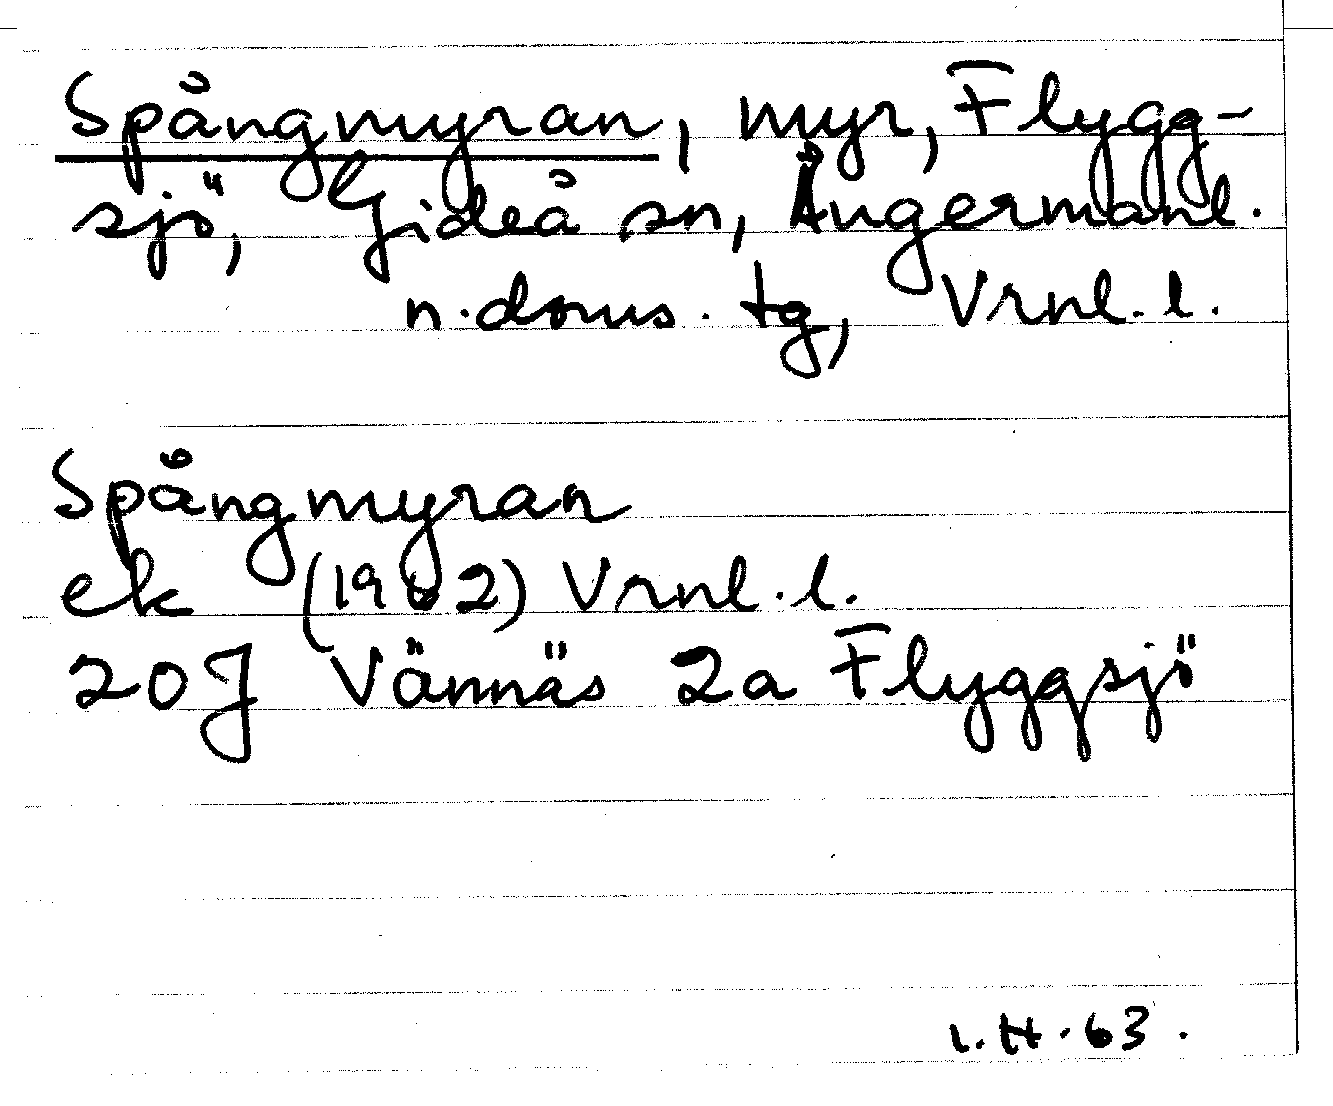 Spångmyran, myr, Flygg-
sjö, Gideå sn, Ångermanl.
n. doms. tg, Vrnl. l.
Spångmyran
ek (1962) Vrnl. l.
20J Vännäs 2a Flyggsjö
I. H. 63.